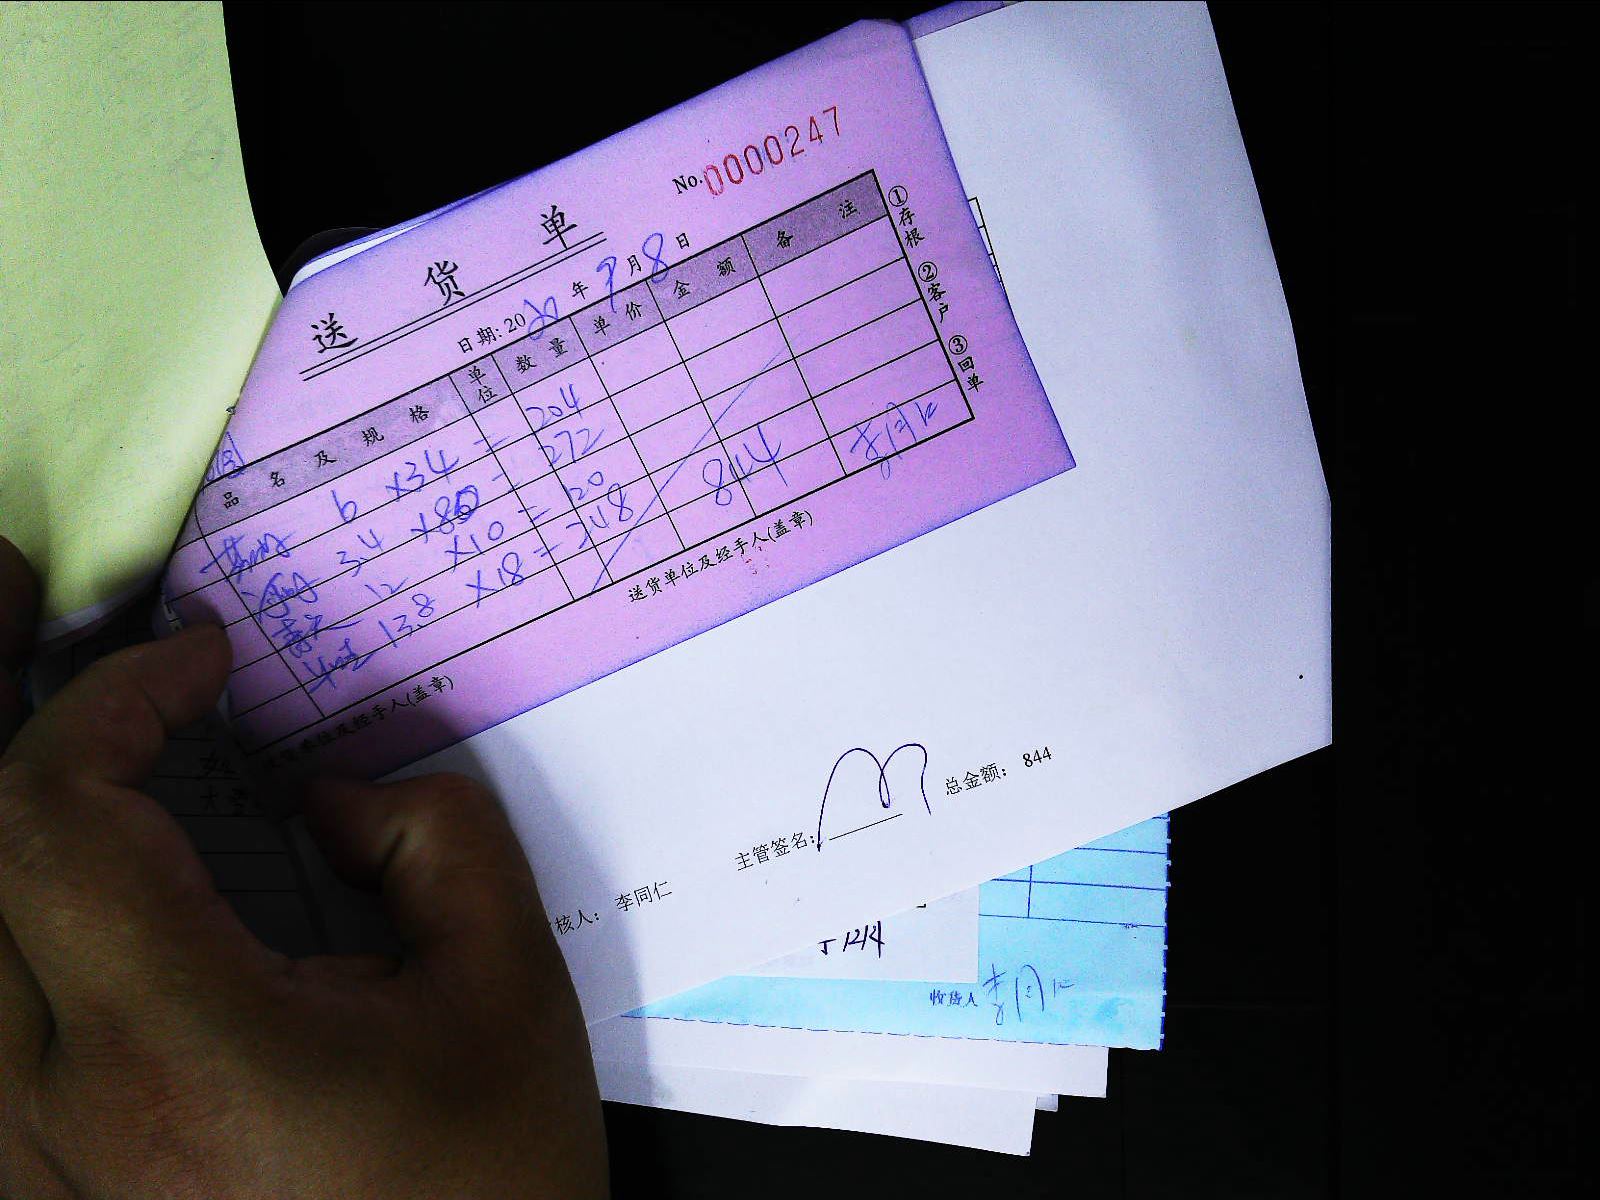 No.0000247
送货单
日期: 2020年9月8日
品名及规格 单位 数量 单价 金额 备注
6 ×34 = 204
3.4 ×80 = 272
12 ×10 = 120
13.8 ×18 = 248
844 李同仁
①存根 ②客户 ③回单
收货单位及经手人(盖章) 送货单位及经手人(盖章)
核人: 李同仁 主管签名: 总金额: 844
1214
收货人 李同仁